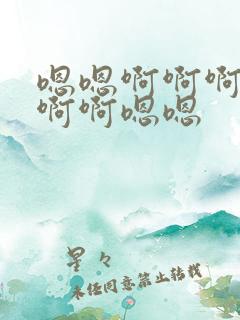 嗯嗯啊啊啊
啊啊嗯嗯
星々
未经同意禁止转载